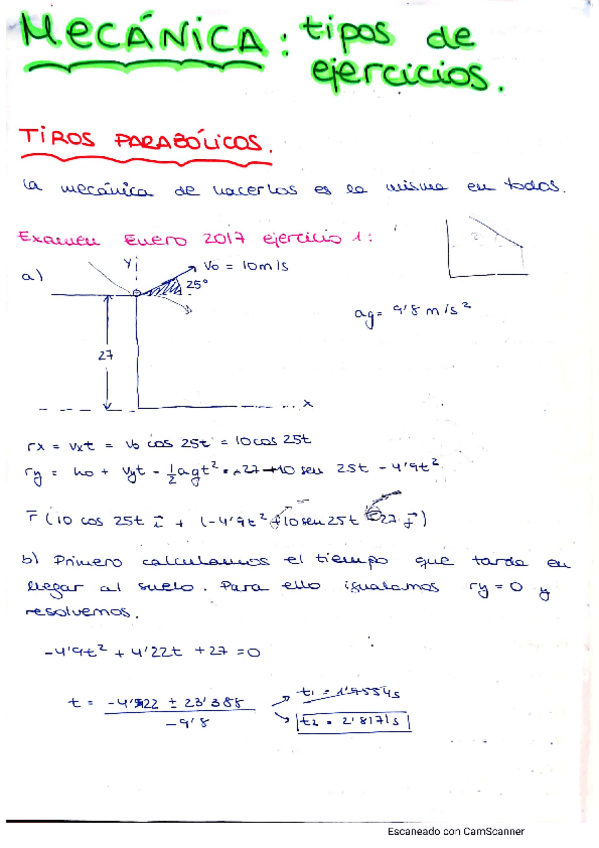 MECÁNICA: tipos de
ejercicios.
TIROS PARABÓLICOS.
La mecánica de hacerlos es la misma en todos.
Examen Enero 2017 ejercicio 1:
a)
Y
Vo = 10m/s
25°
27
X
ag = 9'8 m/s²
rx = Vxt = Vo cos 25t = 10 cos 25t
ry = ho + Vyt - 1/2 agt² = 27 + 10 sen 25t - 4'9t²
r (10 cos 25t i + (-4'9t² + 10 sen 25t 27 j)
b) Primero calculamos el tiempo que tarda en
llegar al suelo. Para ello igualamos ry = 0 y
resolvemos.
-4'9t² + 4'22t + 27 = 0
t = -4'22 ± 23'388 / -9'8
t1 =
t2 = 2'817 s
Escaneado con CamScanner